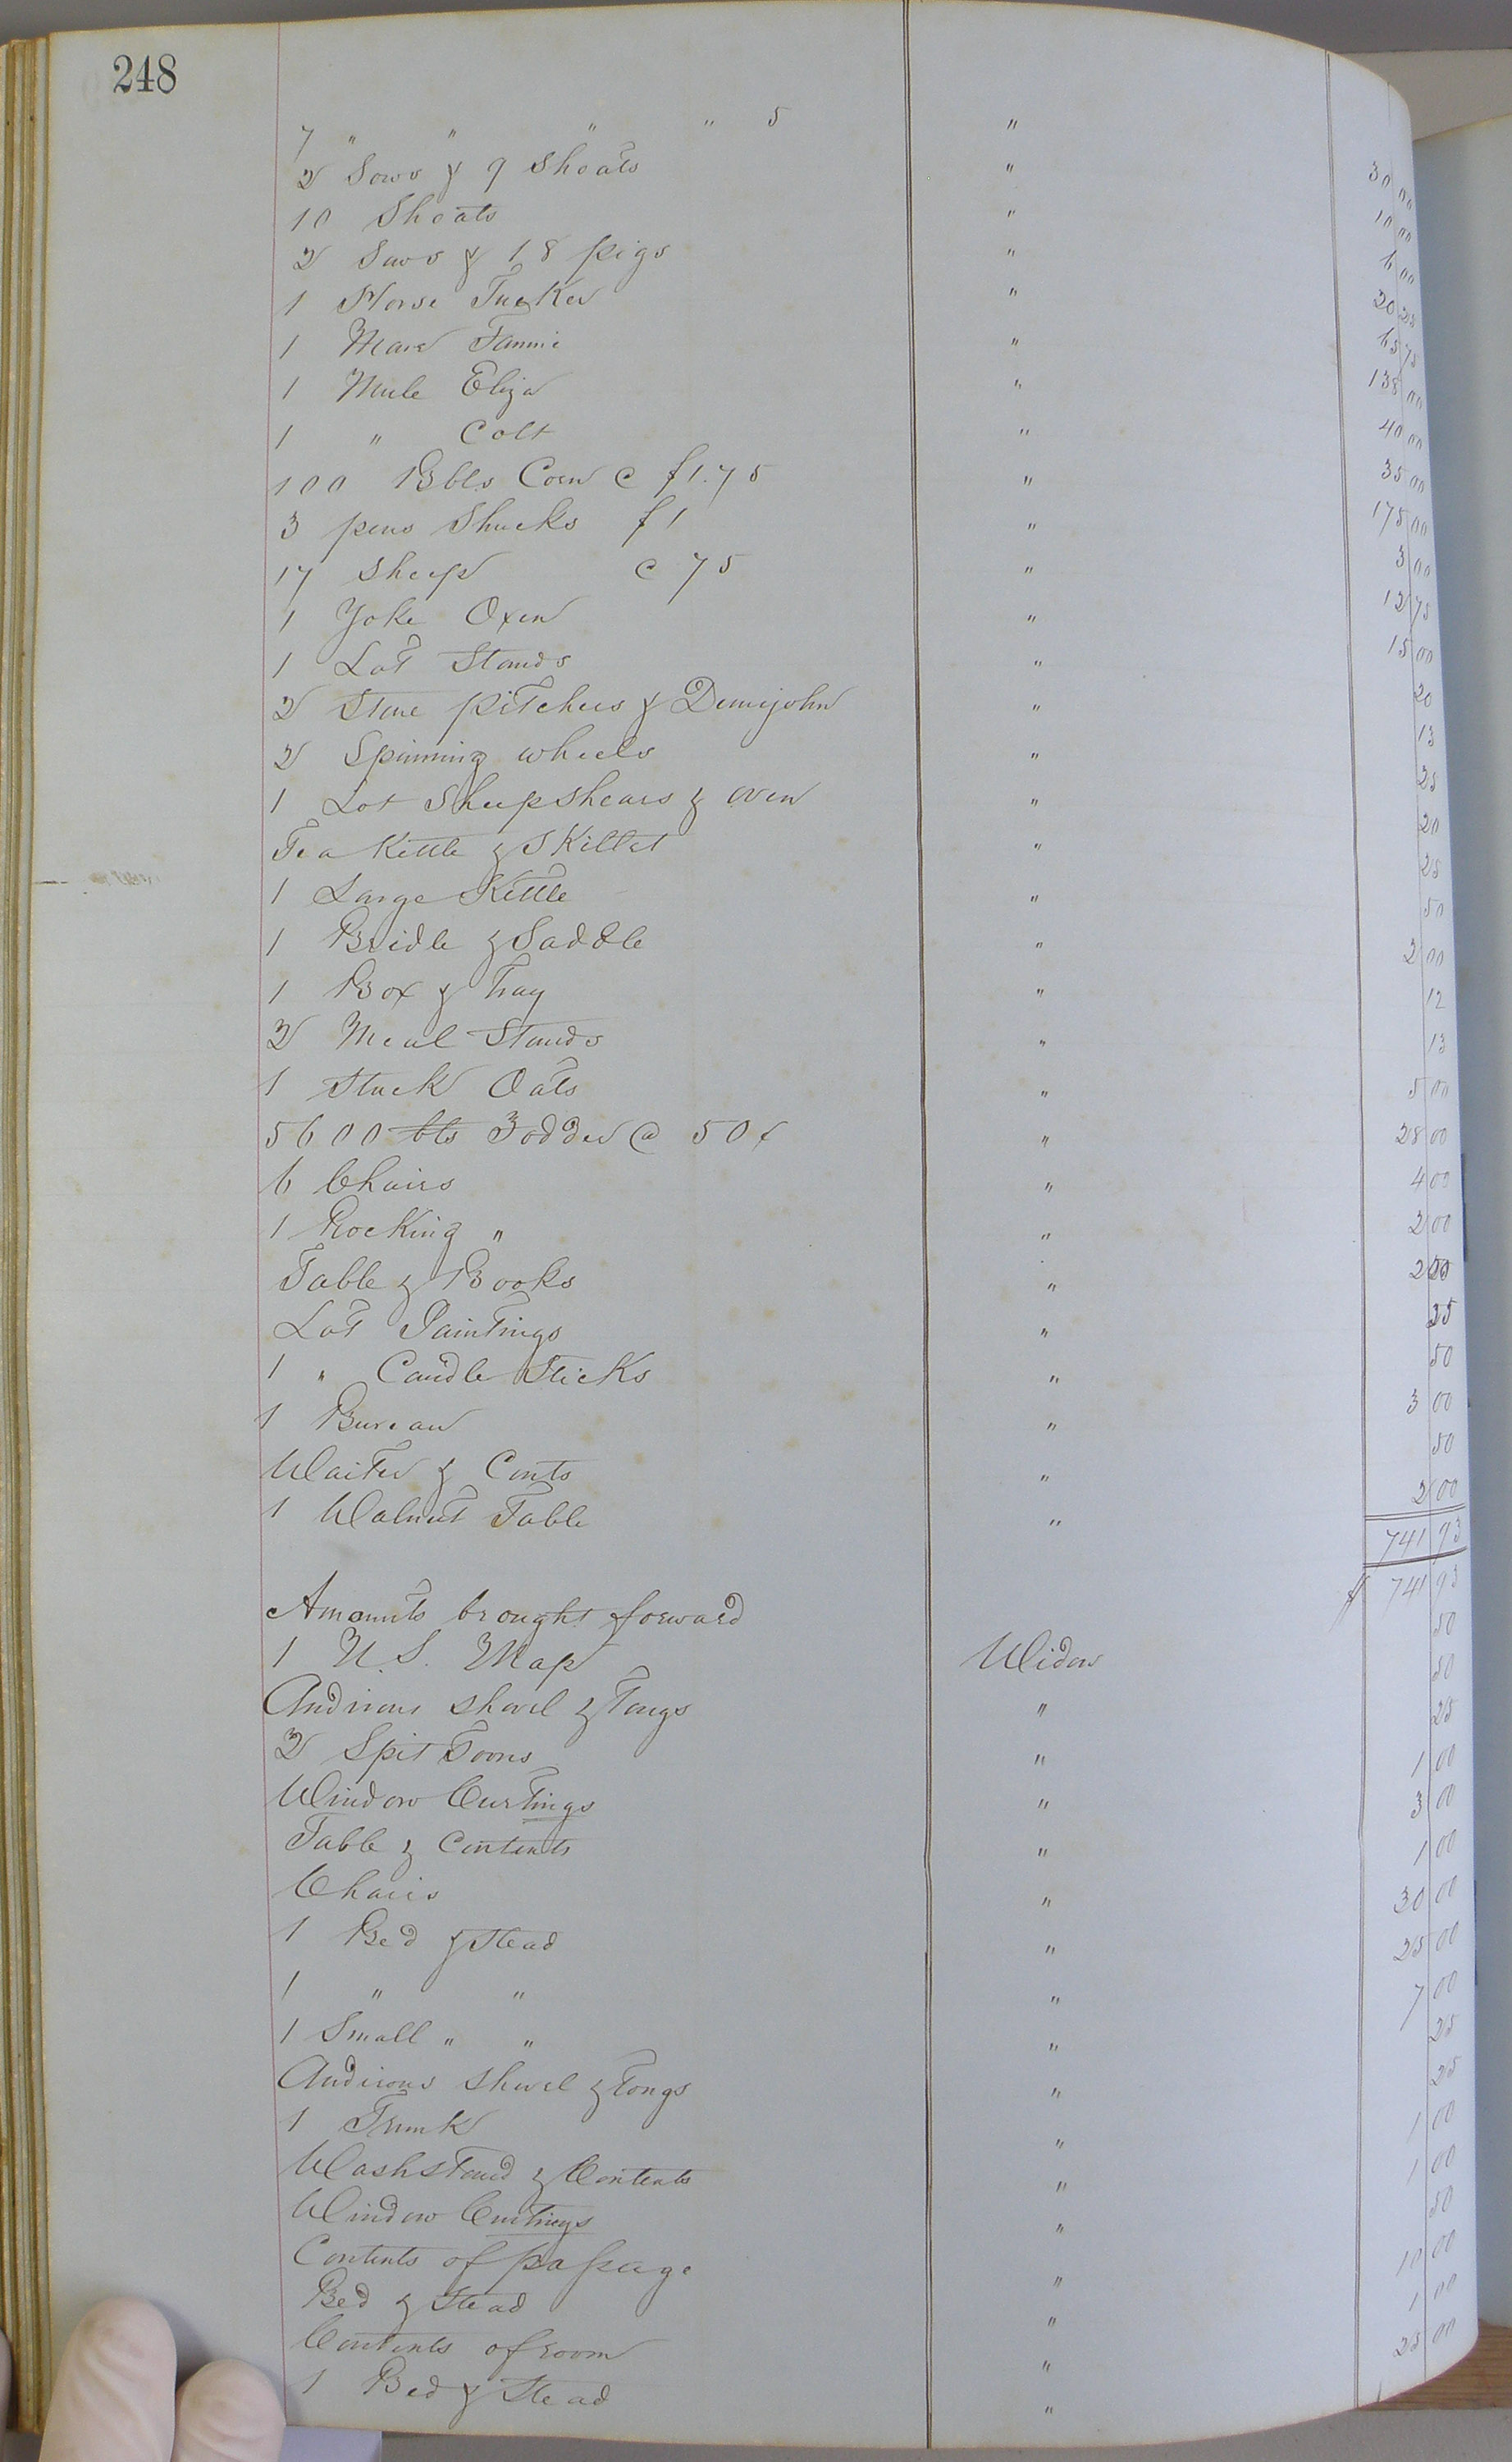 248
7 " " " " 5 " 30 00
2 Sows & 9 Shoats " 10 00
10 Shoats " 6 00
2 Sows & 18 pigs " 20 25
1 Horse Tucker " 65 75
1 Mare Fannie " 138 00
1 Mule Eliza " 40 00
1 " Colt " 35 00
100 Bbls Corn @ $1.75 " 175 00
3 pens Shucks $1 " 3 00
17 Sheep @ 75 " 12 75
1 Yoke Oxen " 15 00
1 Lot Stands " 20
2 Stone pitchers & Demijohn " 13
2 Spinning wheels " 25
1 Lot Sheepshears & oven " 20
Tea Kettle & Skillet " 25
1 Large Kettle " 50
1 Bridle & Saddle " 2 00
1 Box & Tray " 12
2 Meal Stands " 13
1 Stack Oats " 5 00
5600 lbs Fodder @ 50¢ " 28 00
6 Chairs " 4 00
1 Rocking " " 2 00
Table & Books " 2 50
Lot Paintings " 25
1 " Candle Sticks " 50
1 Bureau " 3 00
Waiter & Conts " 50
1 Walnut Table " 2 00
741 93
Amounts brought forward $ 741 93
1 U.S. Map Widow 50
Andirons shovel & Tongs " 50
2 Spit Toons " 25
Window Curtings " 1 00
Table & Contents " 3 00
Chairs " 1 00
1 Bed & Stead " 30 00
1 " " " 25 00
1 Small " " " 7 00
Andirons Shovel & Tongs " 25
1 Trunk " 25
Washstand & Contents " 1 00
Window Curtings " 1 00
Contents of passage " 50
Bed & Stead " 10 00
Contents of room " 1 00
1 Bed & Stead " 25 00